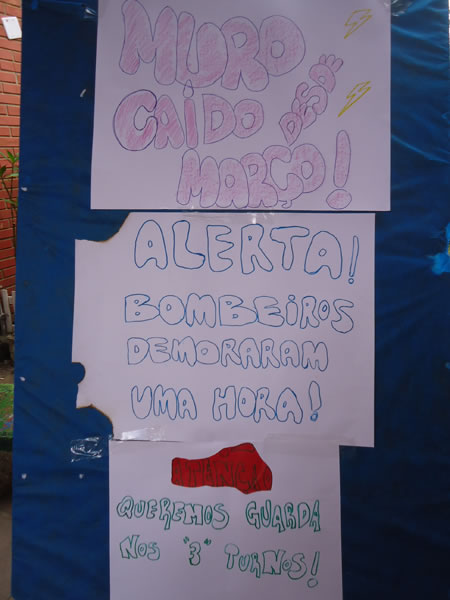 MURO
CAÍDO DESDE
MARÇO!
ALERTA!
BOMBEIROS
DEMORARAM
UMA HORA!
QUEREMOS GUARDA
NOS "3" TURNOS!